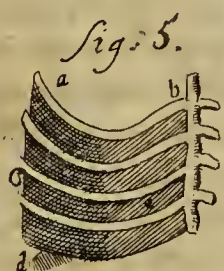 fig: 5.
a
b
c
d